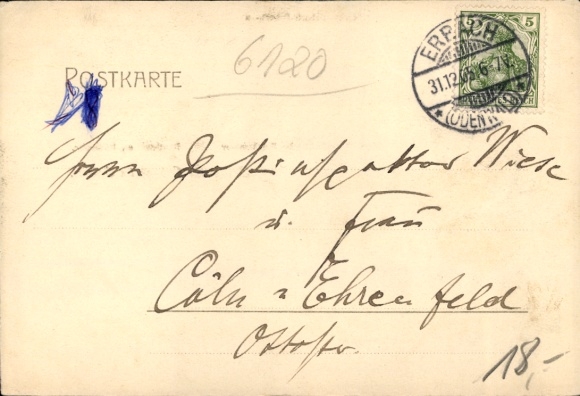 POSTKARTE
6120
5 5
ERBACH
31.12.05. 6-7N.
* (ODENWALD) *
Herrn Postinspektor Wiese
u. Frau
Cöln-Ehrenfeld
Ottostr.
18,-